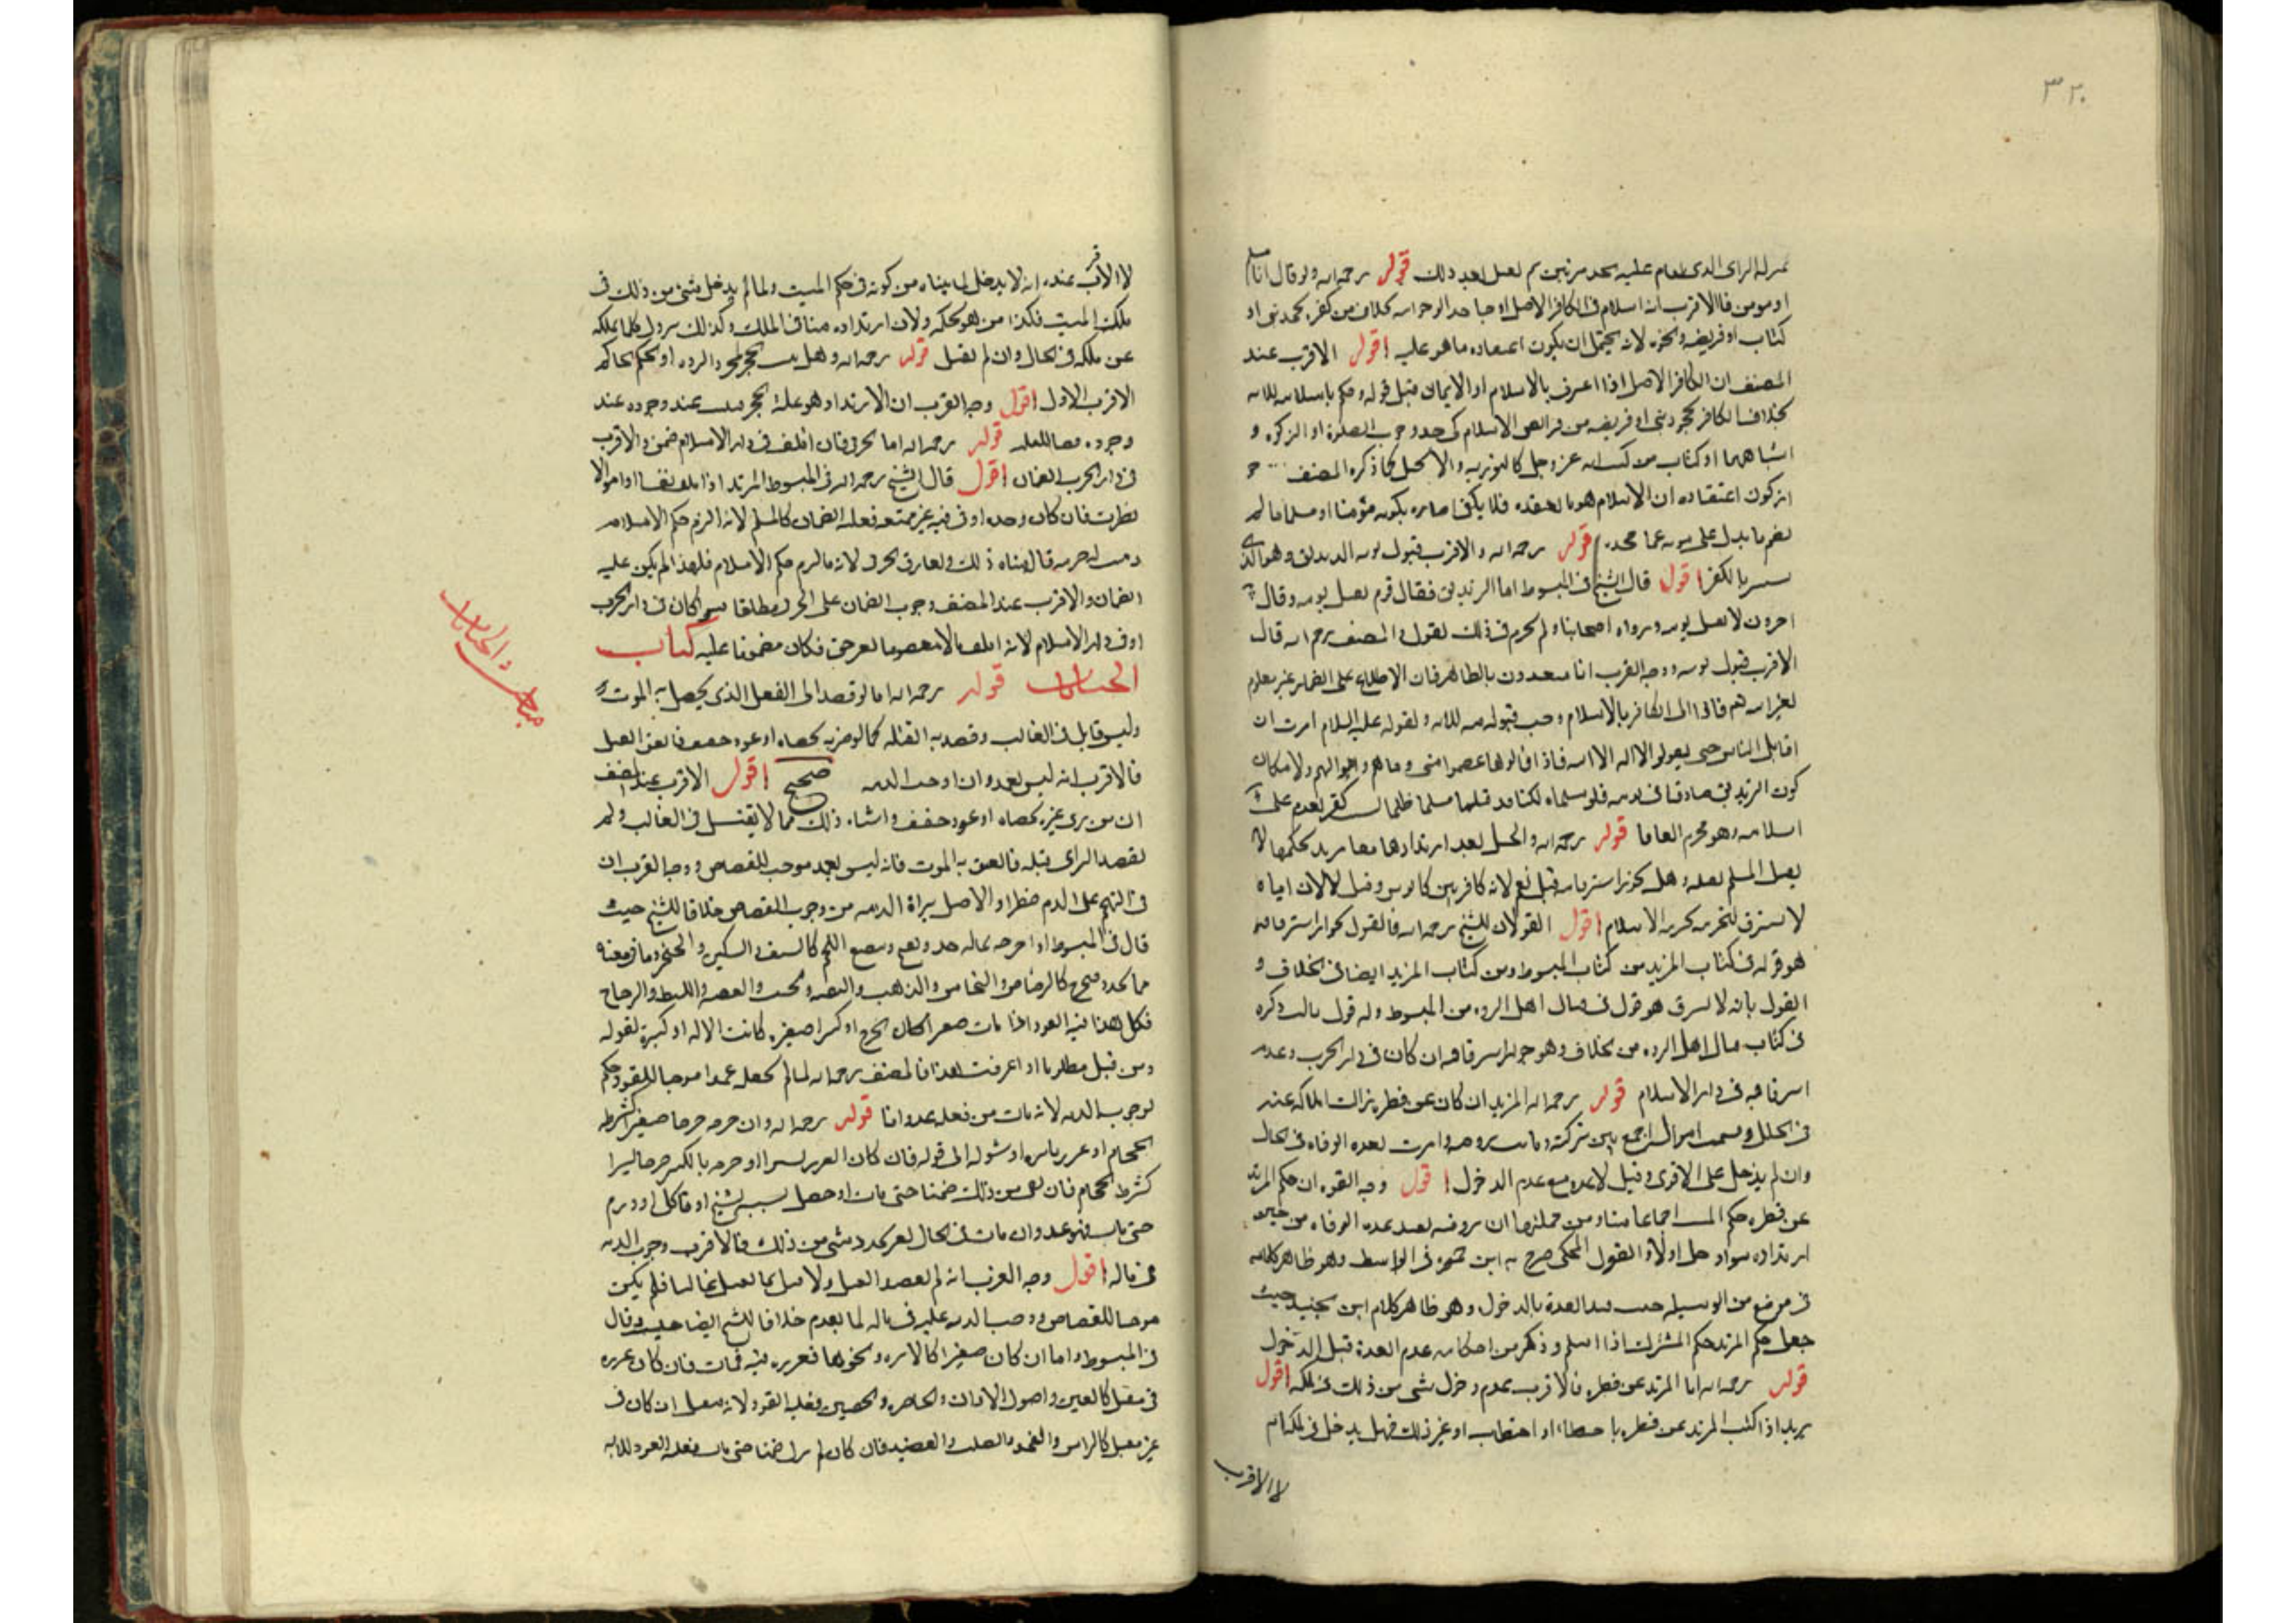 ٣٢٠
قوله رحمه الله ولو قال انا مسلم
او مومن فالاقرب انه اسلام فى الكافر الاصلى او جاحد الوحدانيه بخلاف من كفره بجحد نبى او
كتاب او فريضه ونحوه لانه يحتمل ان يكون اعتقاده ما هو عليه اقول الاقرب عند
المصنف ان الكافر الاصلى اذا اعترف بالاسلام او الايمان قبل قوله وحكم باسلامه
بخلاف الكافر بجحد نبى او فريضه من فرائض الاسلام كجحد وجوب الصلوة او الزكوة و
اشباههما او كتاب من كتب الله عز وجل كالتوريه والانجيل لما ذكره المصنف
ان كون اعتقاده ان الاسلام هو ما يعتقده فلا يكفى اخباره بكونه مؤمنا او مسلما ما لم
قوله رحمه الله والاقرب قبول توبه الزنديق وهو الذى
يستتر بالكفر اقول قال الشيخ فى المبسوط اما الزنديق فقال قوم يقبل توبته وقال
اخرون لا يقبل توبته ورواه اصحابنا المصنف رحمه الله قال
الاقرب قبول توبته ووجه القرب انا متعبدون بالظاهر فان الاطلاع على الضمائر غير معلوم
بالاسلام وجب قبوله منه ولقوله عليه السلام امرت ان
اقاتل الناس حتى يقولوا لا اله الا الله فاذا قالوها عصموا منى دماهم واموالهم ولامكان
كون الزنديق صادقا فى توبته فلو قتلناه لكنا قد قتلنا مسلما ظلما
اسلامه وهو محرم اتفاقا قوله رحمه الله والحمل بعد ارتدادهما معا مرتد بحكمهما لا
يقتل المسلم بقتله وهل يجوز استرقاقه قيل نعم لانه كافر بين كافرين وقيل لا لان اباه
لا يسترق لتحرمه بحرمه الاسلام اقول القولان للشيخ رحمه الله فالقول بجواز استرقاقه
هو قوله فى كتاب المرتد من كتاب المبسوط ومن كتاب المرتد ايضا فى الخلاف و
القول بانه لا يسترق هو قول فى قتال اهل الرده من المبسوط وله قول ثالث ذكره
فى كتاب قتال اهل الرده من الخلاف وهو جواز استرقاقه ان كان فى دار الحرب وعدم
استرقاقه فى دار الاسلام قوله رحمه الله المرتد ان كان عن فطره زالت املاكه عنه
فى الحال وقسمت امواله اجمع بين تركته وبانت زوجته وامرت بعده الوفاه فى الحال
وان لم يدخل على الاقوى وقيل لا عده مع عدم الدخول اقول وجه القوه ان حكم المرتد
عن فطره حكم الميت اجماعا منا ومن جملتها ان زوجته تعتد عده الوفاه من حين
ارتداده سواء دخل او لا والقول المحكى صرح به ابن حمزه فى الواسطه وهو ظاهر كلامه
فى موضع من الوسيله حيث قيد العدة بالدخول وهو ظاهر كلام ابن الجنيد حيث
جعل حكم المرتد حكم المشرك اذا اسلم وذكر من احكامه عدم العدة قبل الدخول
قوله رحمه الله اما المرتد عن فطره فالاقرب عدم دخول شى من ذلك فى ملكه اقول
يريد اذا اكتسب المرتد عن فطره او احتطاب او غير ذلك فهل يدخل فى ملكه ام
لا الاقرب
لا الاقرب عنده انه لا يدخل لما بيناه من كونه فى حكم الميت ولما لم يدخل شئ من ذلك فى
ملك الميت فكذا من هو بحكمه ولان ارتداده مناف للملك وكذلك يزول كلما يملكه
عن ملكه فى الحال وان لم يقتل قوله رحمه الله وهل يثبت الحجر بمجرد الرده او بحكم الحاكم
الاقرب الاول اقول وجه القرب ان الارتداد هو علة الحجر فيثبت عند وجوده عند
وجوده قوله رحمه الله اما الحربى فان اتلف فى دار الاسلام ضمن والاقرب
فى دار الحرب الضمان اقول قال الشيخ رحمه الله فى المبسوط المرتد اذا اتلف نفسا او اموالا
نظرت فان كان وحده او فى فئه غير ممتنعه فعليه الضمان كالمسلم لانه التزم حكم الاسلام
قال ويفارق الحربى لانه ما التزم حكم الاسلام فلهذا لم يكن عليه
الضمان والاقرب عند المصنف وجوب الضمان على الحربى مطلقا سواء كان فى دار الحرب
او فى دار الاسلام لانه اتلف مالا معصوما لغير حق فكان مضمونا عليه كتاب
الجنايات قوله رحمه الله اما لو قصد الى الفعل الذى يحصل به الموت
وليس قاتل فى الغالب وقصد به القتل كما لو ضربه بحصاه او عود خفيف فاتفق القتل
فالاقرب انه ليس بعمد وان اوجب الديه صحيح اقول الاقرب عند المصنف
ان من رمى غيره بحصاه او عود خفيف واشباه ذلك مما لا يقتل فى الغالب ولم
يقصد الرامى قتله فاتفق به الموت فانه ليس بعمد موجب للقصاص ووجه القرب ان
فى التهجم على الدم خطرا والاصل براة الذمه من وجوب القصاص خلافا للشيخ حيث
قال فى المبسوط اذا جرحه بما له حد ويبضع اللحم كالسيف والسكين والخنجر وما فى معناه
مما يحدد فيجرح كالرصاص والنحاس والذهب والفضه والخشب والقصب والليطه والزجاج
فكل هذا فيه القود اذا مات صغيرا كان الجرح او كبيرا صغيره كانت الاله او كبيره لقوله
ومن قتل مظلوما اذا عرفت هذا فالمصنف رحمه الله لما لم يجعله عمدا موجبا للقود حكم
بوجوب الديه لانه مات من فعله عدوانا قوله رحمه الله وان جرحه جرحا صغيرا كشرطه
الحجام او غرز بابره او شوكه الى قوله فان كان الغرز يسيرا او جرحه بالكبير جرحا يسيرا
كشرط الحجام فان بقى من ذلك ضمنا حتى مات او حصل بسببه تشنج او تاكل او ورم
حتى مات فهو عمد وان مات فى الحال بغير تجدد شى من ذلك فالاقرب وجوب الديه
فى ماله اقول وجه القرب انه لم يقصد القتل ولا قتل بما يقتل غالبا فلم يكن
موجبا للقصاص ووجب الديه عليه فى ماله لما تقدم خلافا للشيخ ايضا حيث قال
فى المبسوط واما ان كان صغيرا كالابره ونحوها فغرزه فيه فمات فان كان غرزه
فى مقتل كالعين واصول الاذان والخاصره والخصيين فعليه القود لانه مقتل ان كان فى
غير مقتل كالراس والفخذ والصلب والعضد فان كان لم يزل ضمنا حتى مات ففيه القود